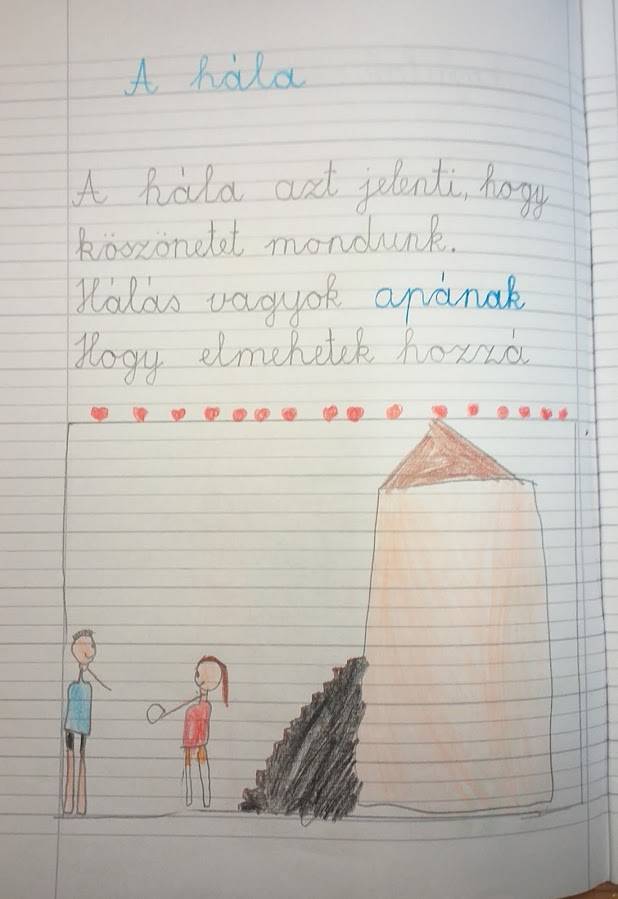 A hála
A hála azt jelenti, hogy
köszönetet mondunk.
Hálás vagyok apának
Hogy elmehetek hozzá